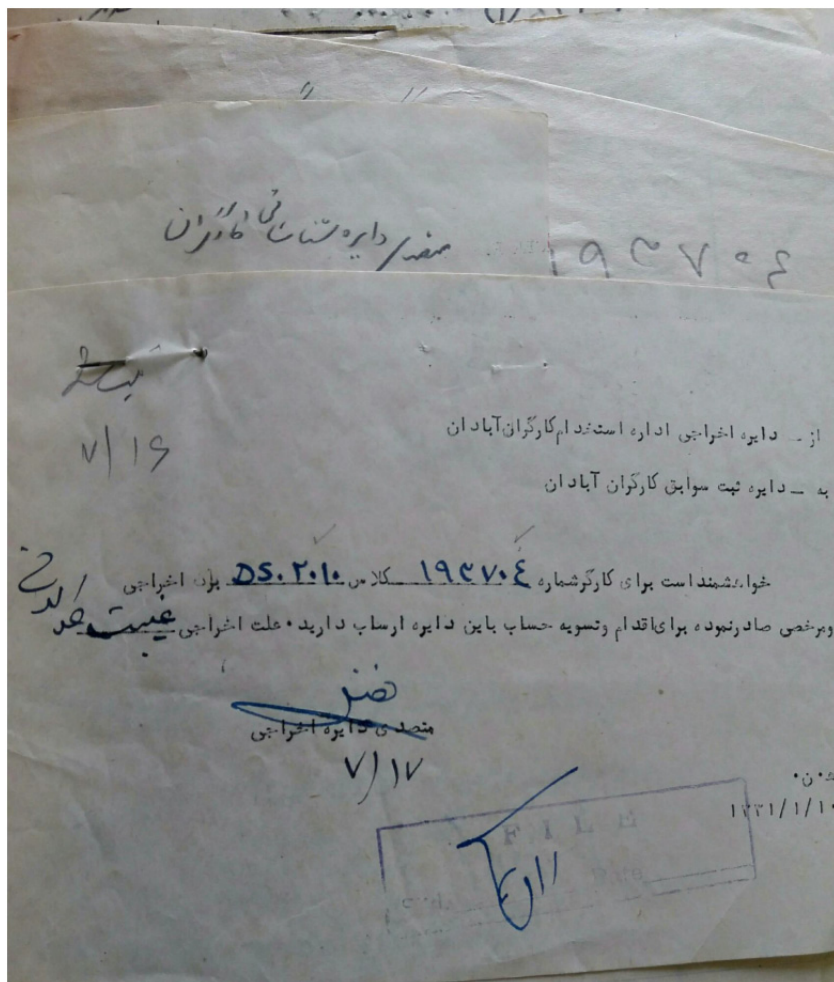 متصدی دایره شناسائی کارگران
۱۹۳۷۰۴
۷/۱۶
از ــ دایره اخراجی اداره استخدام کارگران آبادان
به ــ دایره ثبت سوابق کارگران آبادان
خواهشمند است برای کارگر شماره ۱۹۳۷۰٤ کلاس DS.۲۰۱۰ برگ اخراجی
ومرخصی صادرنموده برای اقدام وتسویه حساب باین دایره ارساب دارید۰علت اخراجی غیبت
متصدی دایره اخراجی
۷/۱۷
۱۳۳۱/۱/۱۰
FILE
Date